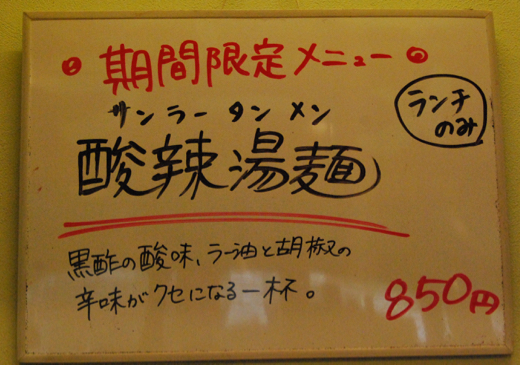 期間限定メニュー
サンラータンメン
酸辣湯麺
ランチ
のみ
黒酢の酸味、ラー油と胡椒の
辛味がクセになる一杯。
850円